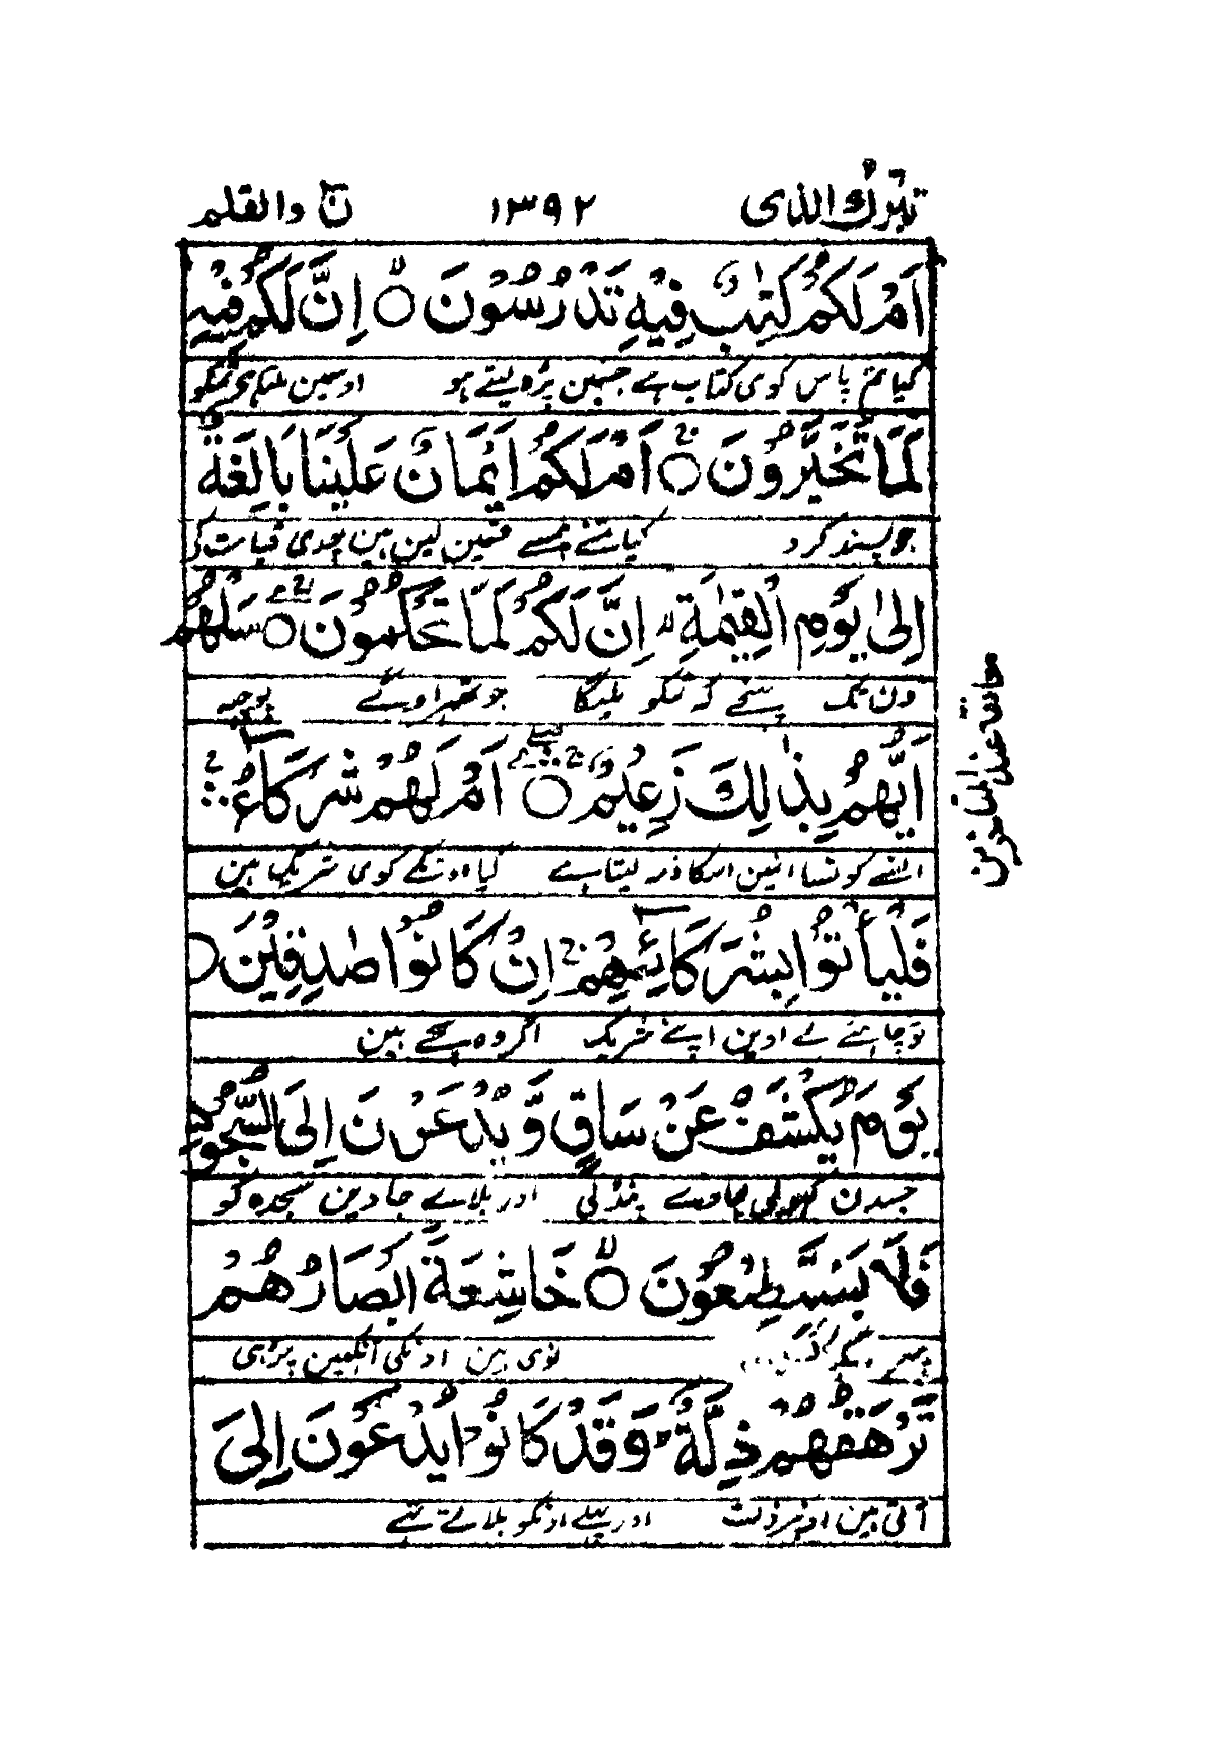 تبرك الذى ١٣٩٢ نۤ والقلم
اَمْ لَكُمْ كِتٰبٌ فِيْهِ تَدْرُسُوْنَ ۙ○ اِنَّ لَكُمْ فِيْهِ
کیا تم پاس کوی کتاب ہے جسمین پڑہ لیتے ہو اوسمین ملتا ہی تمکو
لَمَا تَخَيَّرُوْنَ ۚ○ اَمْ لَكُمْ اَيْمَانٌ عَلَيْنَا بَالِغَةٌ
جو پسند کرو کیا تمنے ہمسے قسمین لین ہین پوری قیامت کی
اِلٰى يَوْمِ الْقِيٰمَةِ ۙ اِنَّ لَكُمْ لَمَا تَحْكُمُوْنَ ۚ○ سَلْهُمْ
دن تک پہنچے کہ تمکو ملیگا جو ٹھہراوگے پوچہہ
اَيُّهُمْ بِذٰلِكَ زَعِيْمٌ ۚ○ اَمْ لَهُمْ شُرَكَآءُ ۚ
النسے کونسا انمین اسکا ذمہ لیتا ہے کیا اونکے کوی شریک ہین
معانقه عند المتأخرين
فَلْيَأْتُوْا بِشُرَكَآئِهِمْ اِنْ كَانُوْا صٰدِقِيْنَ ○
تو چاہئے لے اوین اپنے شریک اگر وہ سچے ہین
يَوْمَ يُكْشَفُ عَنْ سَاقٍ وَّيُدْعَوْنَ اِلَى السُّجُوْدِ
جسدن کھولی جاوے پنڈلی اور بلاے جاوین سجدہ کو
فَلَا يَسْتَطِيْعُوْنَ ۙ○ خَاشِعَةً اَبْصَارُهُمْ
پہر نوی ہین اونکی آنکہین چڑہی
تَرْهَقُهُمْ ذِلَّةٌ ؕ وَقَدْ كَانُوْا يُدْعَوْنَ اِلَى
آتی ہین اونپر ذلت اور پہلے اونکو بلاتے تہے